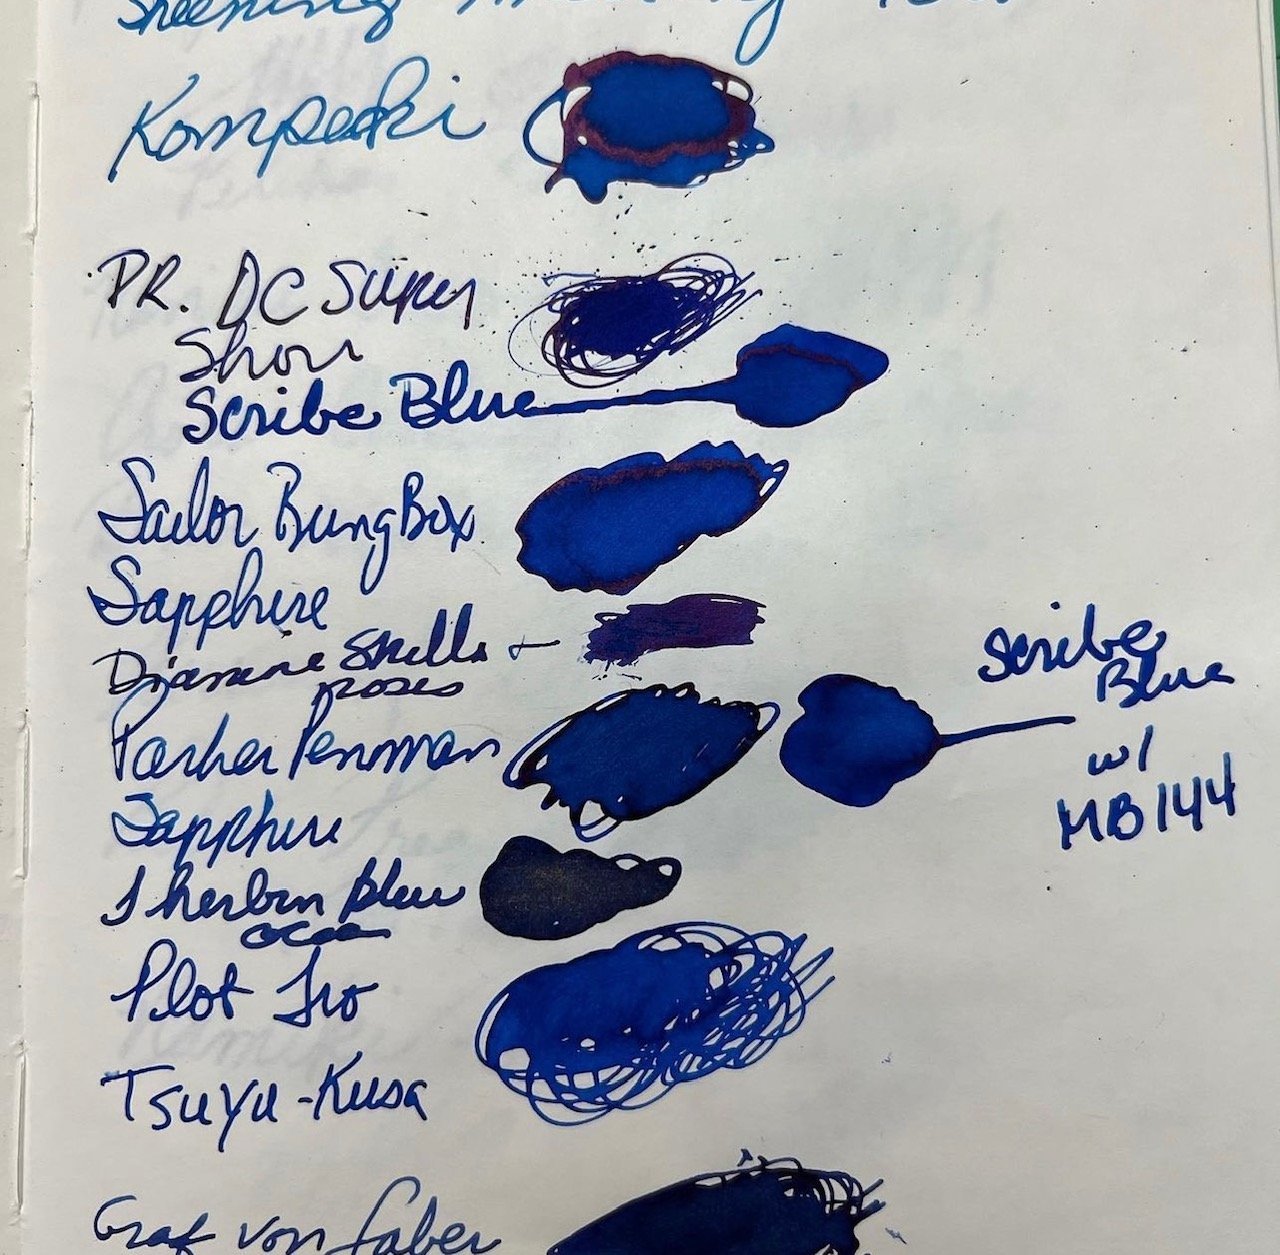 Sheening
Kompeki
PR. DC Super
Show
Scribe Blue
Sailor BungBox
Sapphire
Diamine Skulls +
Roses
Parker Penman
Sapphire
J herbin Blue
ocean
Pilot Iro
Tsuyu-Kusa
Graf von Faber
Scribe
Blue
w/
MB 144